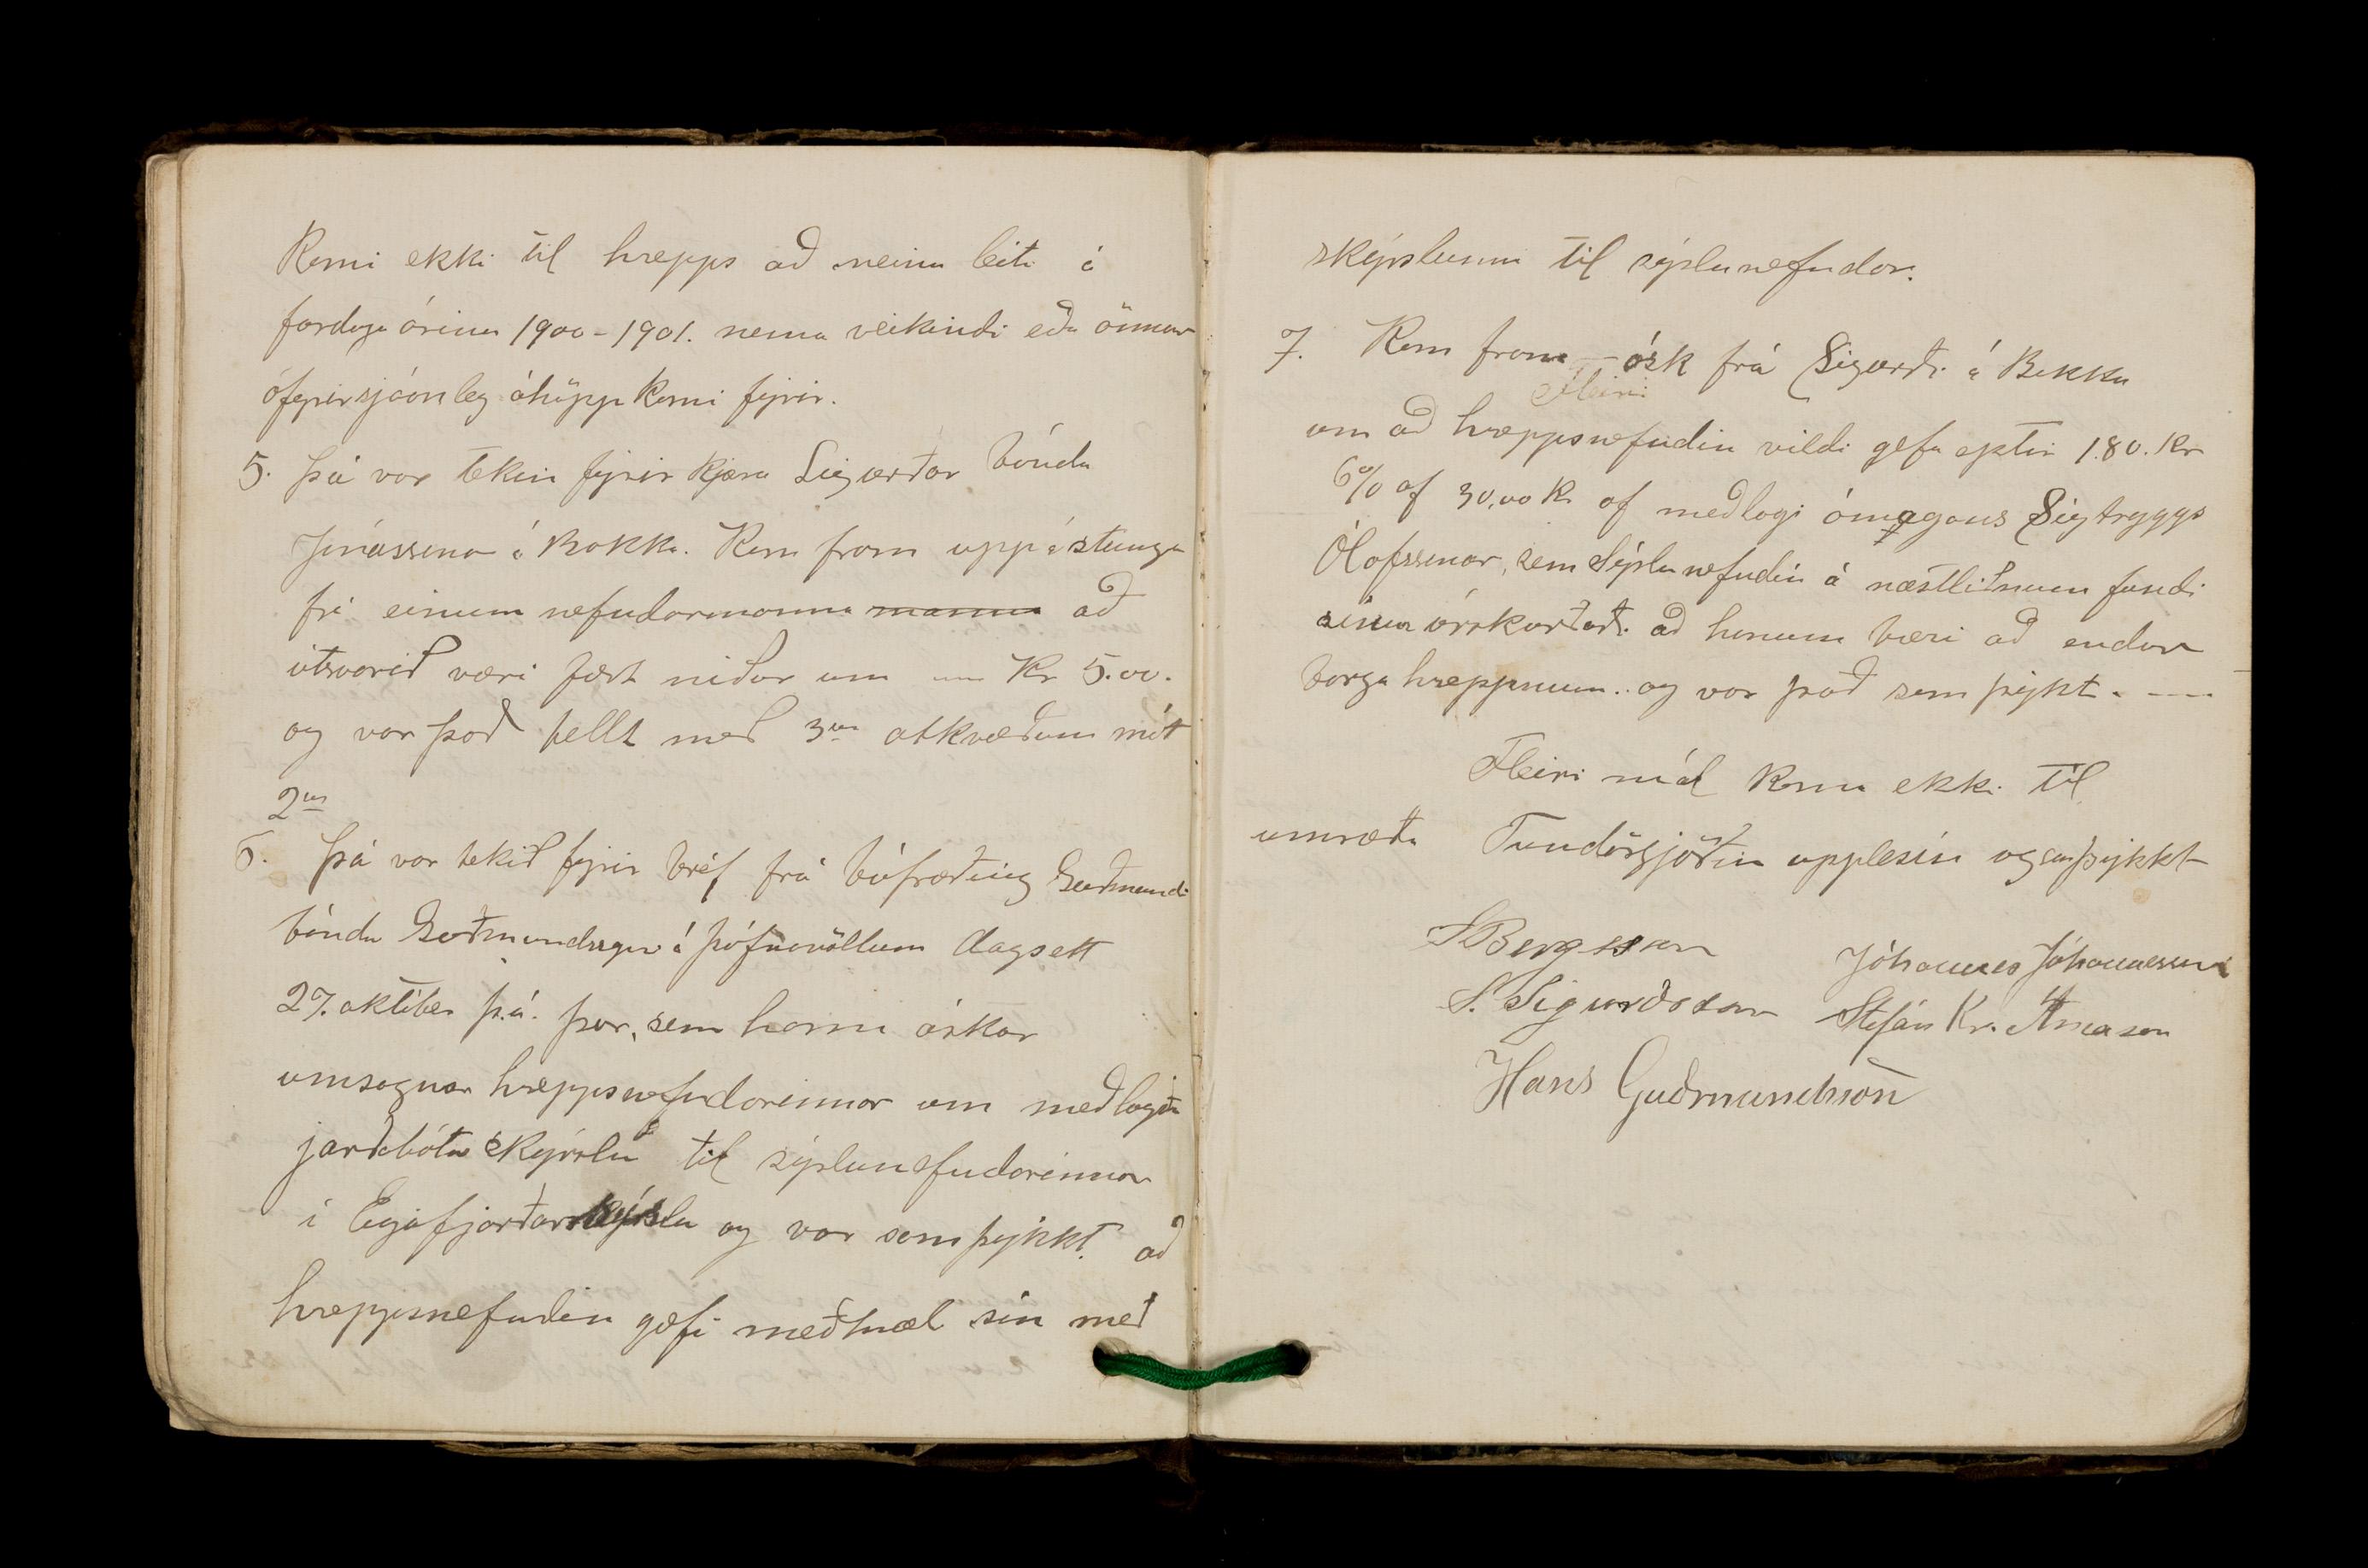 Komi ekki til hrepps að neinu leiti á
fardaga árinu 1900-1901. nema veikindi eða önnur
ófyrirsjáanleg óhöpp komi fyrir.
5. Þá var tekin fyrir kjæra Sigurðar bónda
Jónassonar á Bakka. Kom fram uppástunga
frá einum nefndarmanna manna að
útsvarið væri fært niður um um Kr 5.00.
og var það fellt með 3ur atkvæðum mót
2ur
6. Þá var tekið fyrir bréf frá búfræðing Guðmundi
bónda Guðmundssyni á Þúfnavöllum dagsett
27. október þ.á. þar, sem hann óskar
umsagnar hreppsnefndarinnar um meðlagða
jarðabóta skýrslu til sýslunefndarinnar
í Eyjafjarðarsýslu og var samþykkt að
hreppsnefndin gefi meðmæl sín með
skýrslunni til sýslunefndar.
7. Kom fram - ósk frá Sigurði á Bakka
Fleiri
um að hreppsnefndin vildi gefa eptir 1.80. Kr
6% af 30,00 Kr af meðlagi ómagans Sigtryggs
Ólafssonar, sem Sýslunefndin á næstliðnum fundi
sínum úrskurðaði að honum bæri að endur
borga hreppnum.. og var það samþykt. ----
Fleiri mál komu ekki til
umræðu Fundargjörðin upplesin og samþykkt
S Bergsson Jóhannes Jóhannesson
S. Sigurðsson Stefán Kr. Árnason
Hans Guðmundsson